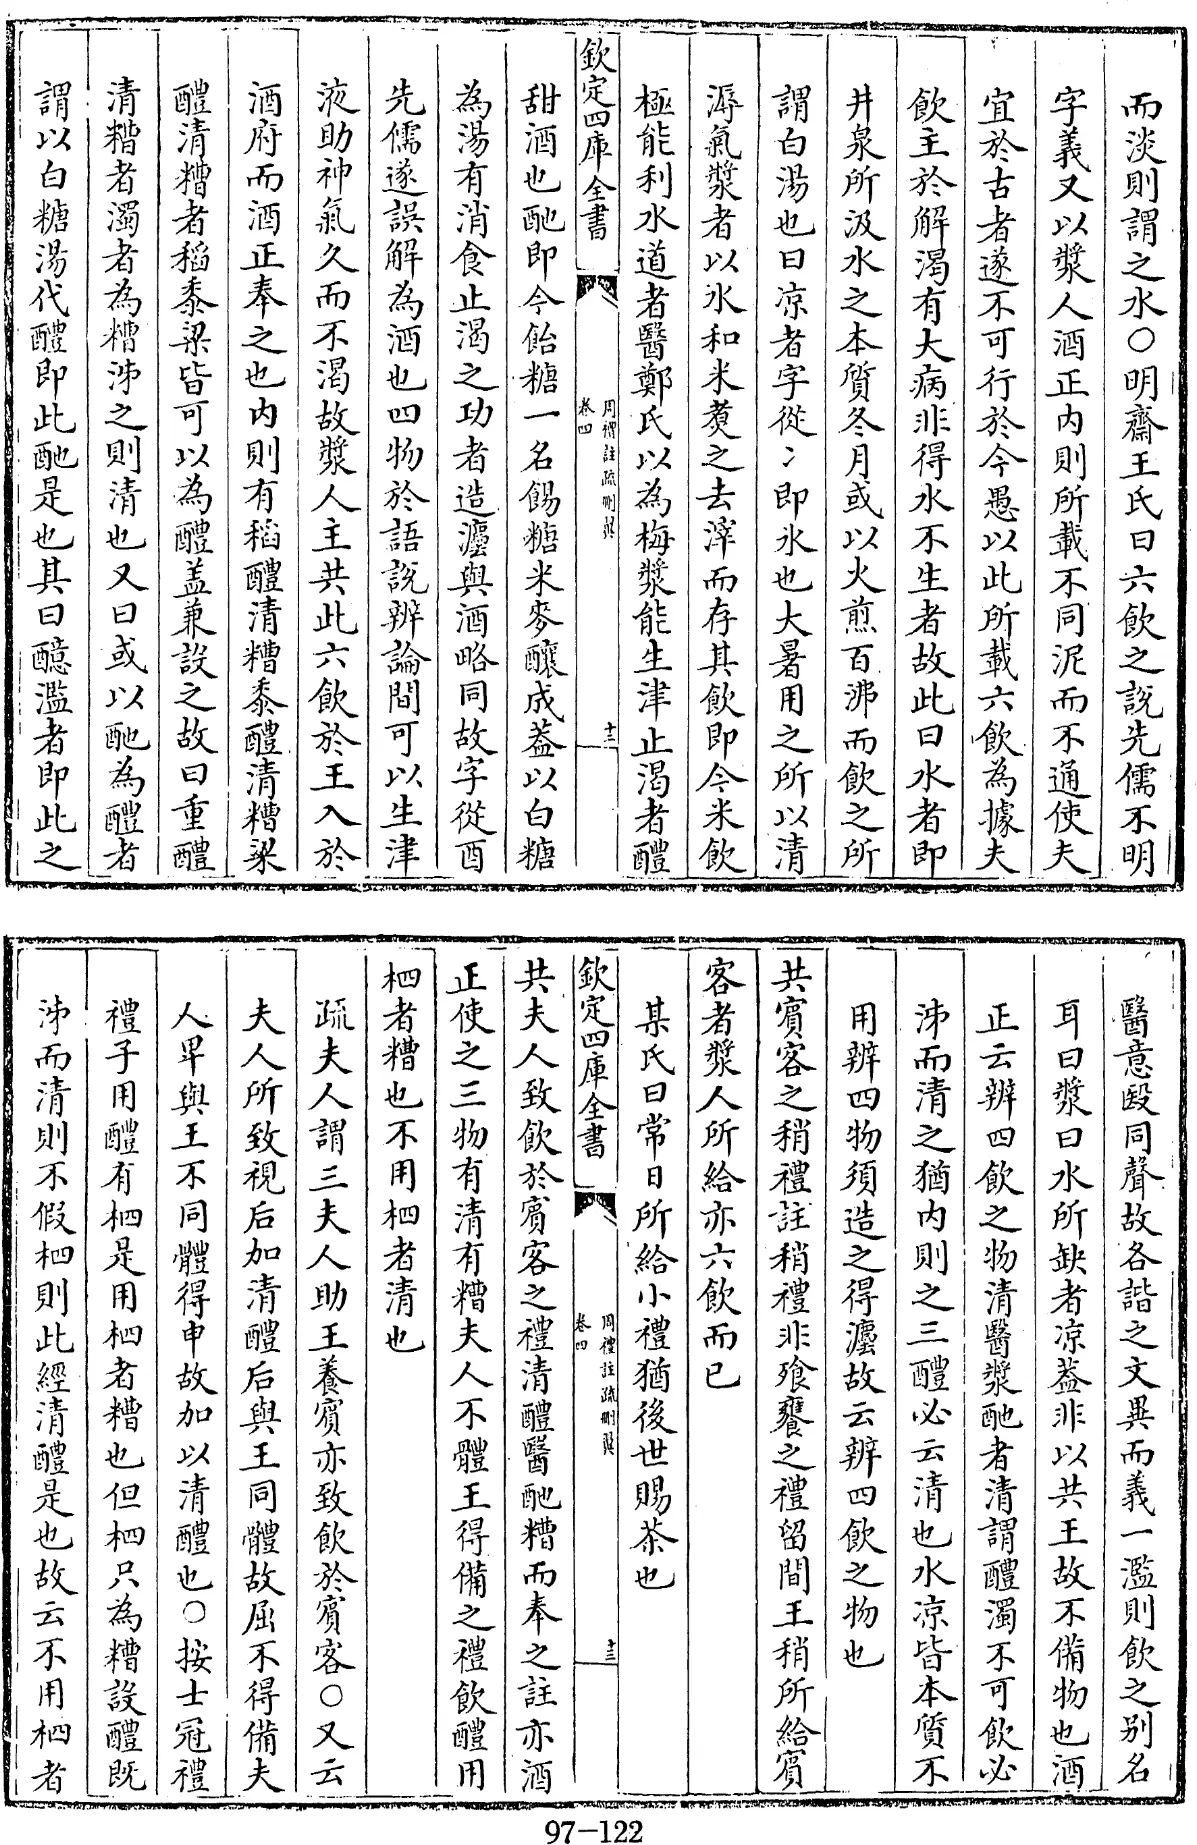 而淡則謂之水〇明齋王氏曰六飲之說先儒不明
字義又以漿人酒正内則所載不同泥而不通使夫
宜於古者遂不可行於今愚以此所載六飲為據夫
飲主於解渴有大病非得水不生者故此曰水者即
井泉所汲水之本質冬月或以火煎百沸而飲之所
謂白湯也曰凉者字從冫即氷也大暑用之所以清
溽氣漿者以氷和米煑之去滓而存其飲即今米飲
極能利水道者醫鄭氏以為梅漿能生津止渴者醴
欽定四庫全書
周禮註疏刪翼
卷四
十三
甜酒也酏即今飴糖一名餳糖米麥釀成蓋以白糖
為湯有消食止渴之功者造瀍與酒略同故字從酉
先儒遂誤解為酒也四物於語說辨論間可以生津
液助神氣久而不渴故漿人主共此六飲於王入於
酒府而酒正奉之也内則有稻醴清糟黍醴清糟粱
醴清糟者稻黍梁皆可以為醴盖兼設之故曰重醴
清糟者濁者為糟泲之則清也又曰或以酏為醴者
謂以白糖湯代醴即此酏是也其曰醷濫者即此之
醫意毉同聲故各諧之文異而義一濫則飲之别名
耳曰漿曰水所缺者凉葢非以共王故不備物也酒
正云辨四飲之物清醫漿酏者清謂醴濁不可飲必
泲而清之猶内則之三醴必云清也水凉皆本質不
用辨四物須造之得瀍故云辨四飲之物也
共賓客之稍禮註稍禮非飱饔之禮留間王稍所給賓
客者漿人所給亦六飲而已
某氏曰常日所給小禮猶後世賜茶也
欽定四庫全書
周禮註疏刪翼
卷四
十三
共夫人致飲於賓客之禮清醴醫酏糟而奉之註亦酒
正使之三物有清有糟夫人不體王得備之禮飲醴用
柶者糟也不用柶者清也
疏夫人謂三夫人助王養賓亦致飲於賓客〇又云
夫人所致視后加清醴后與王同體故屈不得備夫
人卑與王不同體得申故加以清醴也〇按士冠禮
禮子用醴有柶是用柶者糟也但柶只為糟設醴既
泲而清則不假柶則此經清醴是也故云不用柶者
97-122